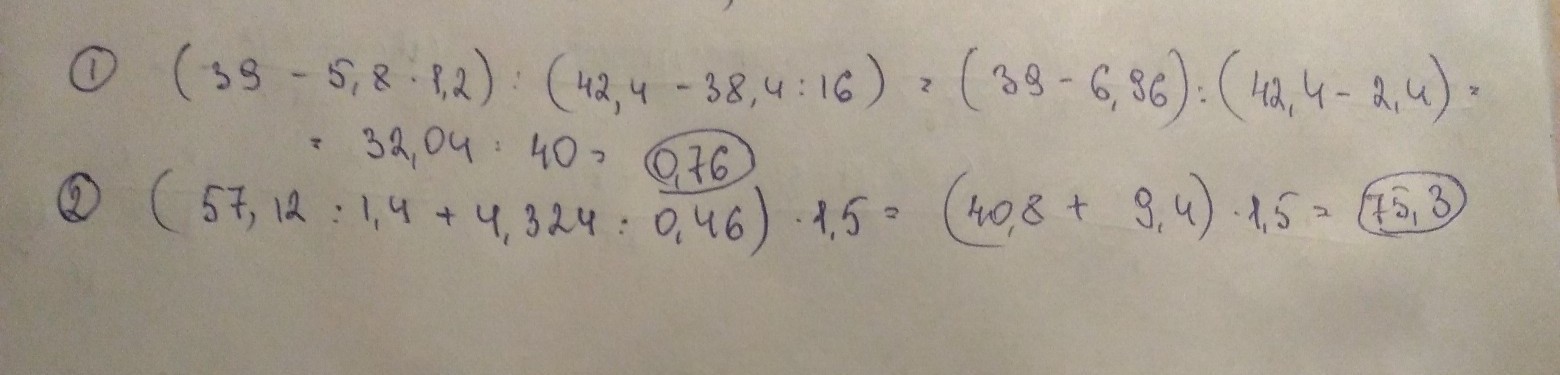 ① (39 - 5,8 · 1,2) : (42,4 - 38,4 : 16) = (39 - 6,96) : (42,4 - 2,4) =
= 32,04 : 40 = 0,76
② (57,12 : 1,4 + 4,324 : 0,46) · 1,5 = (40,8 + 9,4) · 1,5 = 75,3